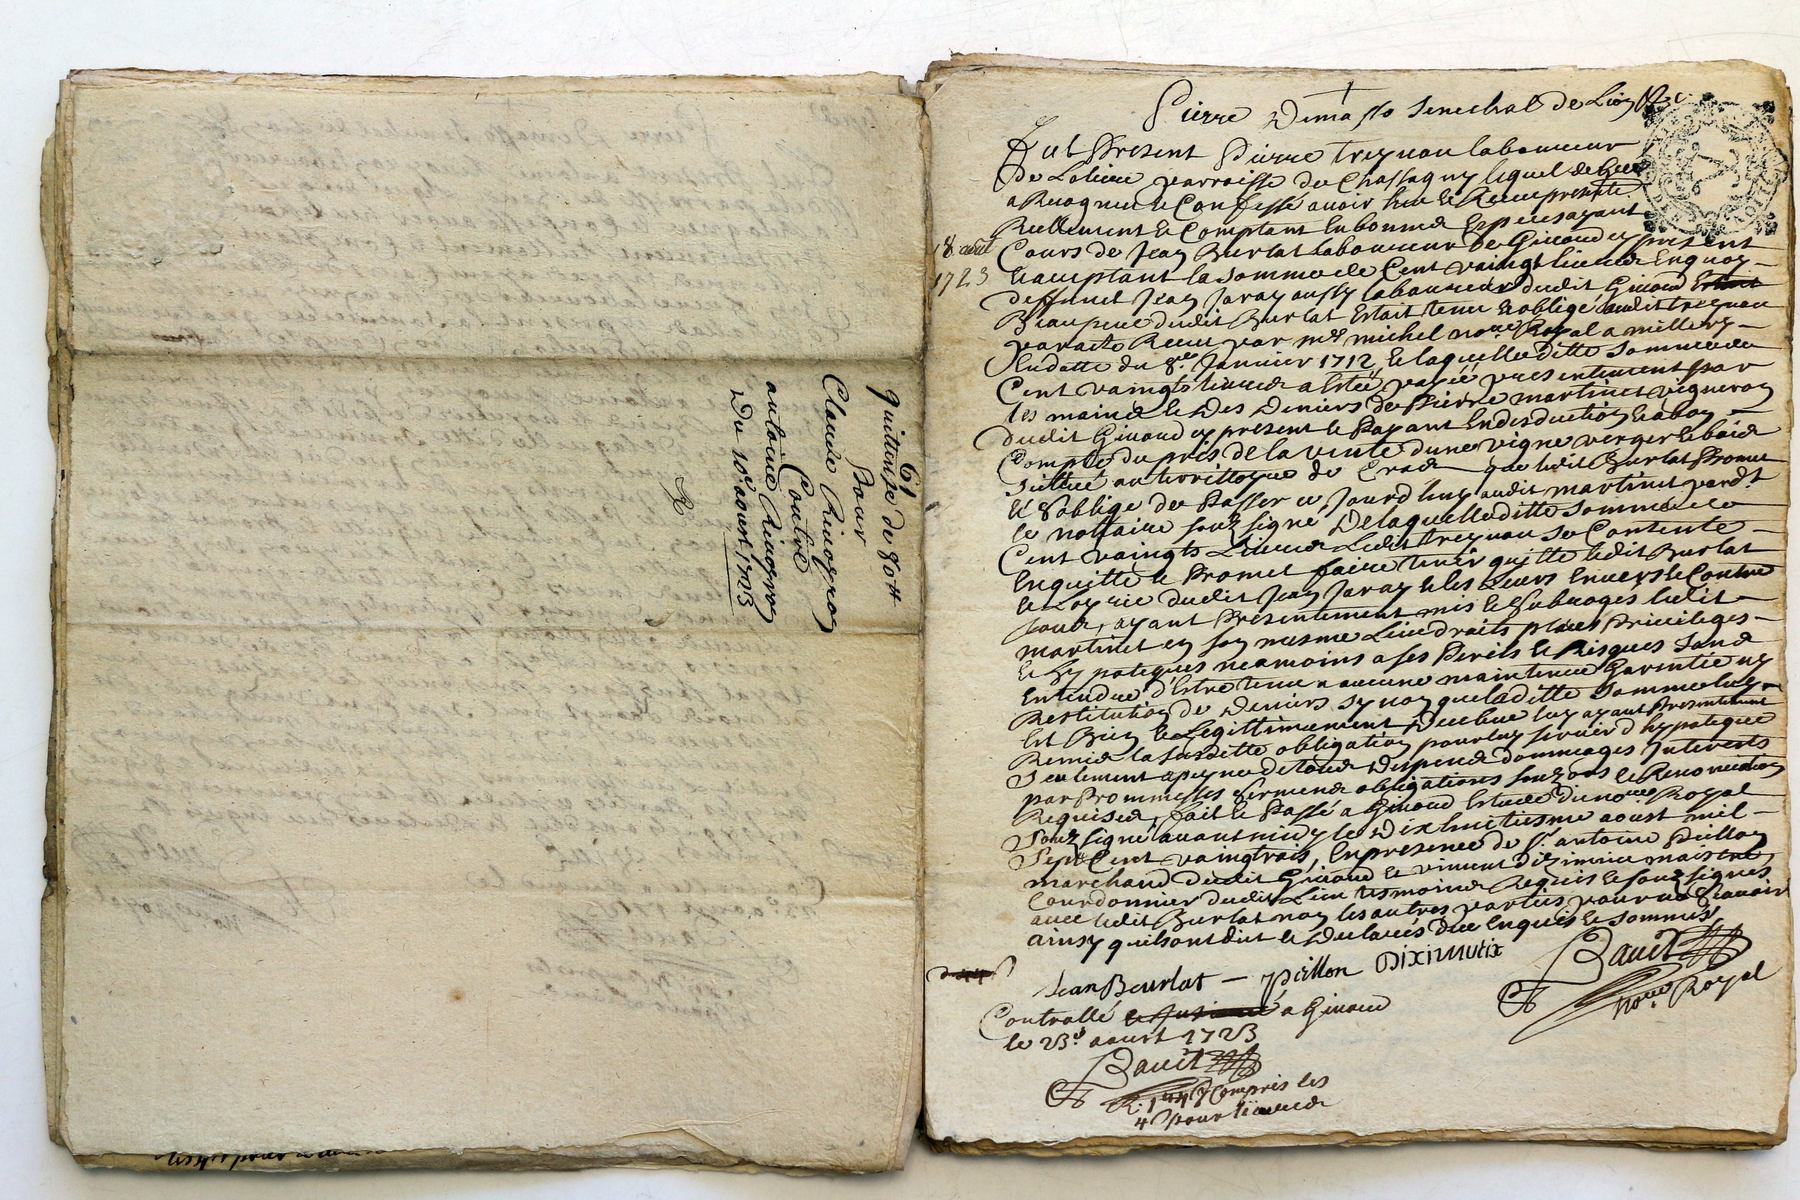 61
quittense de 80 tt
Pour
Claude Rivogron
Contre
antoine Rivogron
Du 10e aoust 1723
Pierre Demasso senechal de Lion &c.
18 aoust
1723
Fut Present Pierre treynau laboureur
De parroisse de Chassagny lequel de Gré
a Recognu et Confessé avoir heu et Receu presente
Reellement et Comptant en bonnes Especes ayant
Cours de Jean Burlat laboureur de Givord cy present
et aceptant la somme de Cent vaingt livres En quoy
deffunct Jean Jaray aussy laboureur dudit Givord
Beaupere dudit Burlat Estait tenu et obligé audit treynau
par acte Receu par Me michel nore Royal a millery
En datte du 8e Janvier 1712, et laquelle ditte somme de
Cent vaingts livres a Esté payée presentement par
les mains et Des Deniers de Pierre martinet vigneron
dudit Givord cy present et Payant En deduction et a bon
Compte du pris de la vente d'une vigne verger et bois
Situés au territtoyre de que ledit Burlat Promet
et s'oblige de Passer ce Jourd'huy audit martinet pardt
le nottaire souzsigné, De laquelle ditte somme de
Cent vaingts Livres Ledit treynau se Contente
En quitte et Promet faire tenir quitte ledit Burlat
et L'oyrie dudit Jean Jaray et les Leurs Envers et Contre
tous, ayant Presentement mis et subroges ledit
martinet en son mesme Lieu droits places Privileges
et hypoteques neamoins a ses Perils et Risques sans
Entendre d'Estre tenu a aucune maintenue Garentie ny
Restitution de Deniers synon que laditte somme luy
Est Bien et Legittimement Deube luy ayant Presentement
Remis la susditte obligation pour luy servir d'hypoteque
seulement a peyne de tous Despens dommages Interests
par Prommesses serments obligations souzons et Renonciations
Requises, fait et Passé a Givord Estude du nore Royal
souzsigné avant midy le Dix huitiesme aoust mil
Sept Cent vaingtrois, En presence de Sr. antoine Peillon
marchand dudit Givord et vincent diximieu maistre
Courdonnier dudit Lieu tesmoins Requis et souzsignés
avec ledit Burlat non les autres parties pour ne scavoir
ainsy qu'ils ont dit et Declarés Due Enquis et sommés
Jean Beurlat — peillon DIXIMIUIX
Bauet
nore Royal
Controllé a Givord
le 23e aoust 1723
Bauet
Compris les
4 s pour